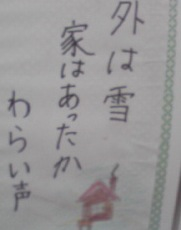 外は雪
家はあったか
わらい声